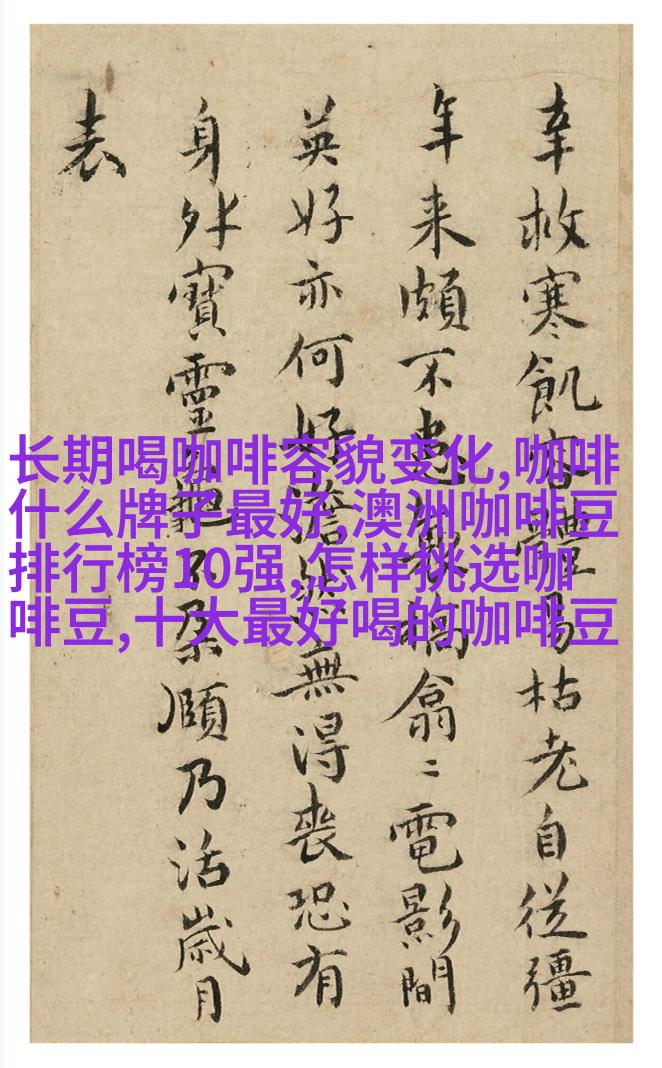 幸救寒飢體易枯老自從彊
年来頗不翕〻電影間
英好亦何好然無得喪恐有
身外寶靈龜不朶頤乃活歲月
表
长期喝咖啡容貌变化,咖啡
什么牌子最好,澳洲咖啡豆
排行榜10强,怎样挑选咖
啡豆,十大最好喝的咖啡豆